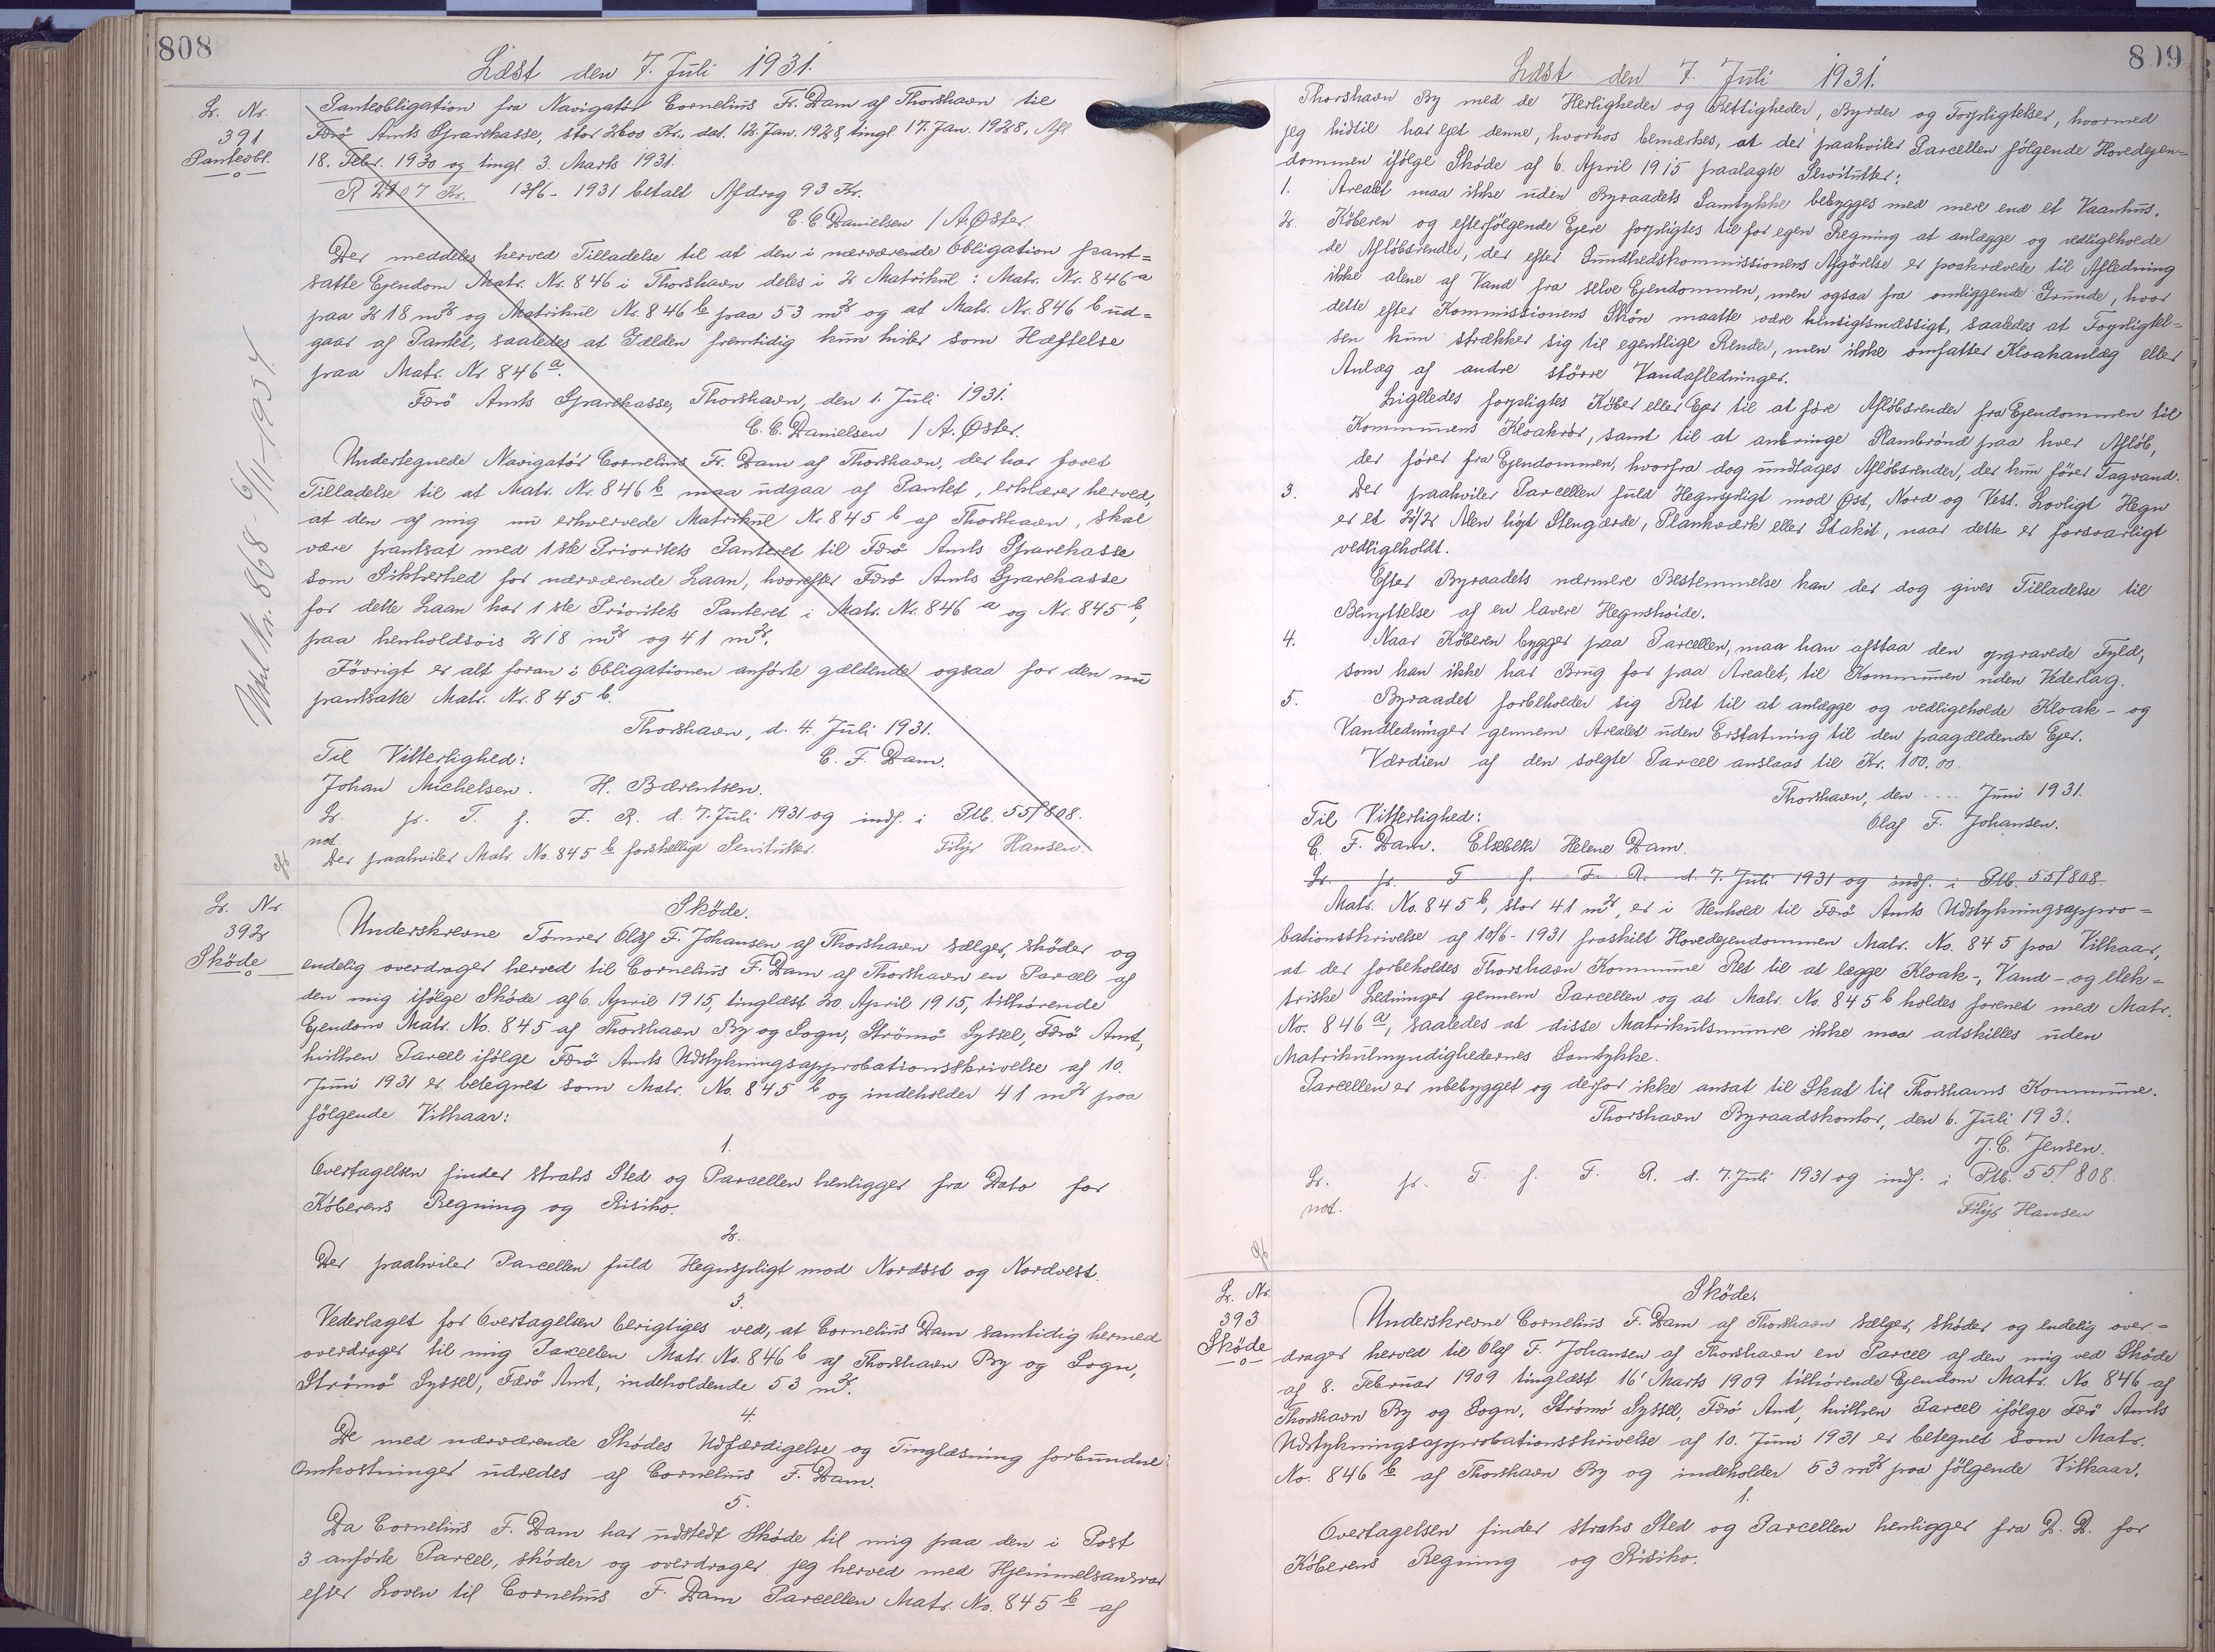 808
Læst den 7. Juli 1931.
L. Nr.
391
Panteobl.
Panteobligation fra Navigatør Cornelius Fr. Dam af Thorshavn til
Færö Amts Sparekasse, stor 2600 Kr., dat. 12. Jan. 1928, tingl. 17. Jan. 1928, Afl.
18. Febr. 1930 og tingl. 3. Marts 1931.
R 2107 Kr. 13/6 - 1931 betalt Afdrag 93 Kr.
C. C. Danielsen / A. Øster.
Der meddeles herved Tilladelse til at den i nærværende Obligation pant=
satte Ejendom Matr. Nr. 846 i Thorshavn deles i 2 Matrikul: Matr. Nr. 846 a
paa 218 m2 og Matrikul Nr. 846 b paa 53 m2 og at Matr. Nr. 846 b ud=
gaar af Pantet, saaledes at Gælden fremtidig kun hviler som Hæftelse
paa Matr. Nr. 846 a.
Færö Amts Sparekasse, Thorshavn, den 1. Juli 1931.
C. C. Danielsen / A. Øster.
Undertegnede Navigatör Cornelius Fr. Dam af Thorshavn, der har faaet
Tilladelse til at Matr. Nr. 846 b maa udgaa af Pantet, erklærer herved,
at den af mig nu erhvervede Matrikul Nr. 845 b af Thorshavn, skal
være pantsat med 1ste Prioritets Panteret til Færö Amts Sparekasse
som Sikkerhed for nærværende Laan, hvorefter Færö Amts Sparekasse
for dette Laan har 1ste Prioritets Panteret i Matr. Nr. 846 a og Nr. 845 b,
paa henholdsvis 218 m2 og 41 m2.
Iövrigt er alt foran i Obligationen anförte gældende ogsaa for den nu
pantsatte Matr. Nr. 845 b.
Thorshavn, d. 4. Juli 1931.
Til Vitterlighed: C. F. Dam.
Johan Michelsen. H. Bærentsen.
L. fr. T. f. F. R. d. 7. Juli 1931 og indf. i Ptb. 55/808.
not.
Der paahviler Matr. No. 845 b forskellige Servitutter. Filip Hansen.
Udsl. Nr. 868 - 6/11 - 1934
L. Nr.
392
Sköde
Sköde.
Underskrevne Tømrer Olaf F. Johansen af Thorshavn sælger, sköder og
endelig overdrager herved til Cornelius F. Dam af Thorshavn en Parcel af
den mig ifölge Sköde af 6. April 1915, tinglæst 20 April 1915, tilhørende
Ejendom Matr. No. 845 af Thorshavn By og Sogn, Strömö Syssel, Færö Amt,
hvilken Parcel ifölge Færö Amts Udstykningsapprobationsskrivelse af 10.
Juni 1931 er betegnet som Matr. No. 845 b og indeholder 41 m2 paa
følgende Vilkaar:
1.
Overtagelsen finder straks Sted og Parcellen henligger fra Dato for
Köberens Regning og Risiko.
2.
Der paahviler Parcellen fuld Hegnspligt mod Nordöst og Nordvest.
3.
Vederlaget for Overtagelsen berigtiges ved, at Cornelius Dam samtidig hermed
overdrager til mig Parcellen Matr. No. 846 b af Thorshavn By og Sogn,
Strömö Syssel, Færö Amt, indeholdende 53 m2.
4.
De med nærværende Skødes Udfærdigelse og Tinglæsning forbundne
Omkostninger udredes af Cornelius F. Dam.
5.
Da Cornelius F. Dam har udstedt Sköde til mig paa den i Post
3 anförte Parcel, sköder og overdrager jeg herved med Hjemmelsansvar
efter Loven til Cornelius F. Dam Parcellen Matr. No. 845 b af
809
Læst den 7. Juli 1931.
Thorshavn By med de Herligheder og Rettigheder, Byrder og Forpligtelser, hvormed
jeg hidtil har ejet denne, hvorhos bemærkes, at der paahviler Parcellen fölgende Hovedejen=
dommen ifölge Sköde af 6. April 1915 paalagte Servitutter:
1. Arealet maa ikke uden Byraadets Samtykke bebygges med mere end et Vaanhus.
2. Köberen og efterfölgende Ejere forpligtes til for egen Regning at anlægge og vedligeholde
de Aflöbsrender, der efter Sundhedskommissionens Afgörelse er paakrævede til Afledning
ikke alene af Vand fra selve Ejendommen, men ogsaa fra omliggende Grunde, hvor
dette efter Kommissionens Skön maatte være hensigtsmæssigt, saaledes at Forpligtel=
sen kun strækker sig til egentlige Render, men ikke omfatter Kloakanlæg eller
Anlæg af andre större Vandafledninger.
Ligeledes forpligtes Köber eller Ejer til at före Aflöbsrender fra Ejendommen til
Kommunens Kloakrör, samt til at anbringe Slambrönd paa hver Aflöb,
der förer fra Ejendommen, hvorfra dog undtages Aflöbsrender, der kun förer Tagvand.
3. Der paahviler Parcellen fuld Hegnspligt mod Øst, Nord og Vest. Lovligt Hegn
er et 2 1/2 Alen höjt Stengærde, Plankeværk eller Stakit, naar dette er forsvarligt
vedligeholdt.
Efter Byraadets nærmere Bestemmelse kan der dog gives Tilladelse til
Benyttelse af en lavere Hegnshöide.
4. Naar Köberen bygger paa Parcellen, maa han afstaa den opgravede Fyld,
som han ikke har Brug for paa Arealet, til Kommunen uden Vederlag.
5. Byraadet forbeholder sig Ret til at anlægge og vedligeholde Kloak- og
Vandledninger gennem Arealet uden Erstatning til den paagældende Ejer.
Værdien af den solgte Parcel anslaas til Kr. 100.00.
Thorshavn, den .... Juni 1931.
Til Vitterlighed: Olaf F. Johansen.
C. F. Dam. Elsebeth Helene Dam.
L. fr. T f. F. R. d. 7. Juli 1931 og indf. i Ptb. 55/808.
Matr. No. 845 b, stor 41 m2, er i Henhold til Færö Amts Udstykningsappro=
bationsskrivelse af 10/6 - 1931 fraskilt Hovedejendommen Matr. No. 845 paa Vilkaar,
at der forbeholdes Thorshavn Kommune Ret til at lægge Kloak-, Vand- og elek=
triske Ledninger gennem Parcellen og at Matr. No. 845 b holdes forenet med Matr.
No. 846 a, saaledes at disse Matrikulsnumre ikke maa adskilles uden
Matrikulmyndighedernes Samtykke.
Parcellen er ubebygget og derfor ikke ansat til Skat til Thorshavns Kommune.
Thorshavn Byraadskontor, den 6. Juli 193.
J. C. Jensen.
L. fr. T. f. F. R. d. 7. Juli 1931 og indf. i Ptb. 55/808.
not. Filip Hansen
L. Nr.
393
Sköde
Sköde.
Underskrevne Cornelius F. Dam af Thorshavn sælger, sköder og endelig over-=
drager herved til Olaf F. Johansen af Thorshavn en Parcel af den mig ved Sköde
af 8. Februar 1909 tinglæst 16' Marts 1909 tilhørende Ejendom Matr. No. 846 af
Thorshavn By og Sogn, Strömö Syssel, Færö Amt, hvilken Parcel ifölge Færö Amts
Udstykningsapprobationsskrivelse af 10. Juni 1931 er betegnet som Matr.
No. 846 b af Thorshavn By og indeholder 53 m2 paa fölgende Vilkaar.
1.
Overtagelsen finder straks Sted og Parcellen henligger fra D. D. for
Köberens Regning og Risiko.